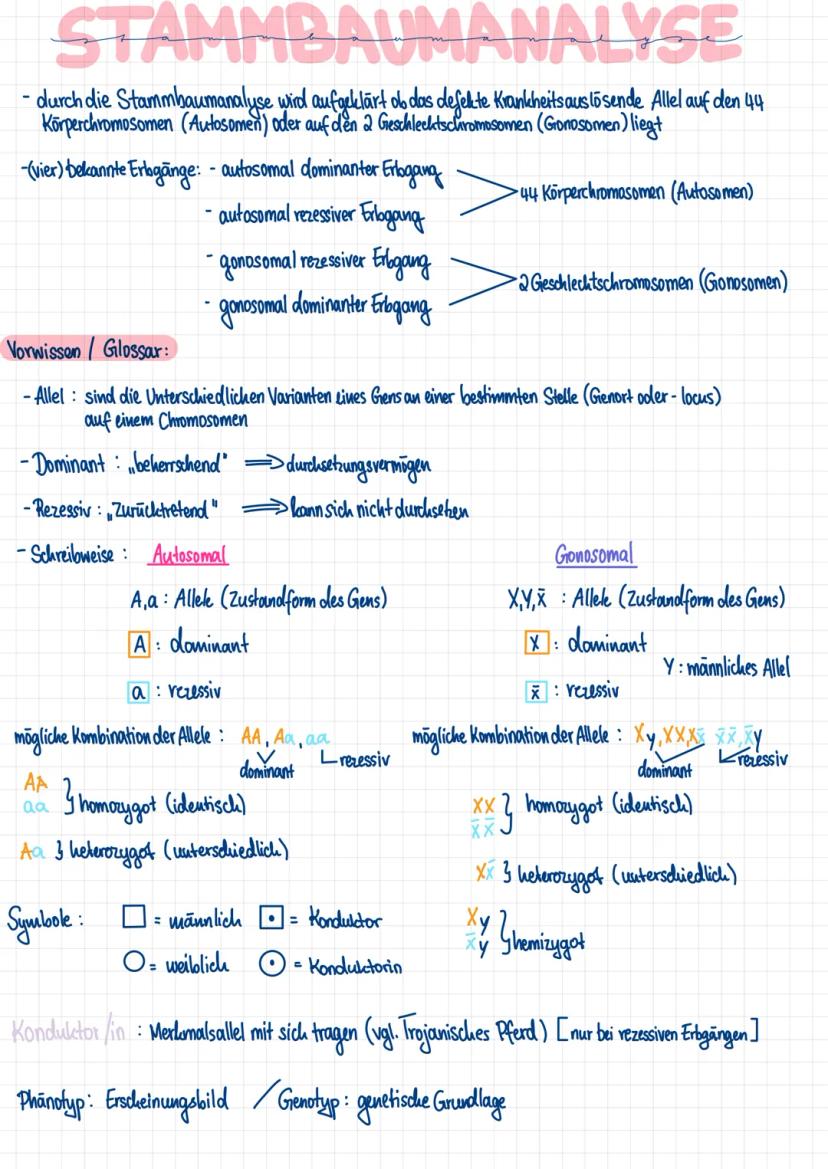 STAMMBAUMANALYSE
stammbaumanalyse
- durch die Stammbaumanalyse wird aufgeklärt ob das defekte Krankheitsauslösende Allel auf den 44
Körperchromosomen (Autosomen) oder auf den 2 Geschlechtschromosomen (Gonosomen) liegt
-(vier) bekannte Erbgänge: - autosomal dominanter Erbgang
44 Körperchromosomen (Autosomen)
- autosomal rezessiver Erbgang
- gonosomal rezessiver Erbgang
2 Geschlechtschromosomen (Gonosomen)
- gonosomal dominanter Erbgang
Vorwissen / Glossar:
- Allel : sind die Unterschiedlichen Varianten eines Gens an einer bestimmten Stelle (Genort oder - locus)
auf einem Chromosomen
- Dominant : „beherrschend" ⟹ durchsetzungsvermögen
- Rezessiv : „Zurücktretend" ⟹ kann sich nicht durchsetzen
- Schreibweise : Autosomal Gonosomal
A,a : Allele (Zustandform des Gens) X,Y,x̄ : Allele (Zustandform des Gens)
A : dominant X : dominant
Y : männliches Allel
a : rezessiv x̄ : rezessiv
mögliche Kombination der Allele : AA, Aa, aa mögliche Kombination der Allele : Xy, XX, Xx̄ x̄x̄, x̄y
dominant rezessiv dominant rezessiv
AA
aa } homozygot (identisch) XX
x̄x̄ } homozygot (identisch)
Aa } heterozygot (unterschiedlich) Xx̄ } heterozygot (unterschiedlich)
Symbole : □ = männlich ⊡ = Konduktor Xy
x̄y } hemizygot
○ = weiblich ⊙ = Konduktorin
Konduktor/in : Merkmalsallel mit sich tragen (vgl. Trojanisches Pferd) [nur bei rezessiven Erbgängen]
Phänotyp: Erscheinungsbild / Genotyp : genetische Grundlage